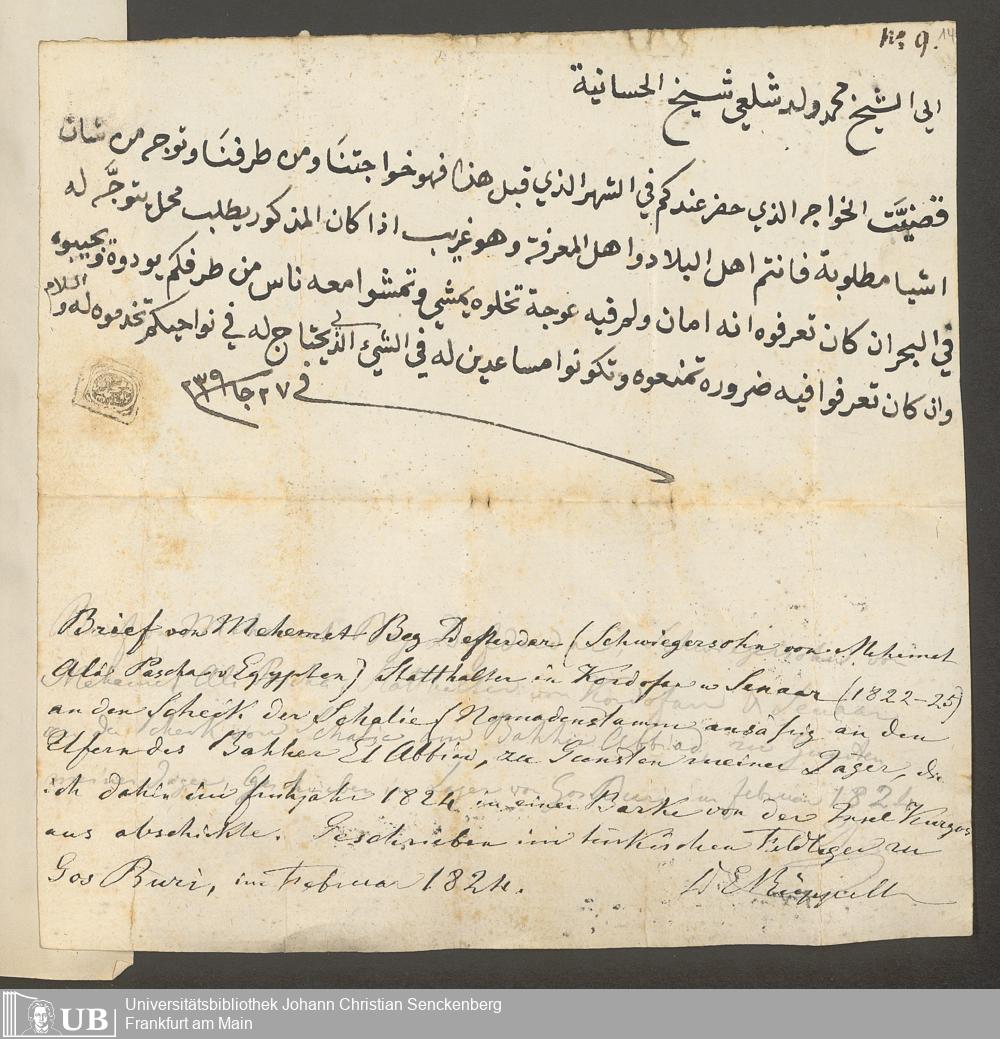 No 9.
14
الي الشيخ محمد ولد شلعي شيخ الحسانية
قضيت الخواجه الذي حضر عندكم في الشهر الذي قبل هذا فهو خواجتنا ومن طرفنا وتوجه من شان
اشيا مطلوبة فانتم اهل البلاد واهل المعرفة وهو غريب اذا كان المذكور يطلب محل يتوجه له
في البحر ان كان تعرفوه انه امان ولم فيه عوجة تخلوه يمشي وتمشوا معه ناس من طرفكم يودوه ويجيبوه
وان كان تعرفوا فيه ضروره تمنعوه وتكونوا مساعدين له في الشيء الذي يحتاج له في نواحيكم تخدموه له والسلام
في ٢٧ جا ٢٣٩
Brief von Mehemet Beg Defterdar (Schwiegersohn von Mehemet
Ali Pascha v Egypten) Statthalter in Kordofan u Senaar (1822–25)
an den Scheik der Schalie (Nomadenstamm ansäsig an den
Ufern des Bahher El Abbiad, zu Gunsten meiner Jäger, die
ich dahin im frühjahr 1824 in einer Barke von der Insel Kurgos
aus abschikte. Geschrieben im türkischen Feldlager zu
Gos Buri, im Februar 1824. Dr. E Rüppell
UB
Universitätsbibliothek Johann Christian Senckenberg
Frankfurt am Main